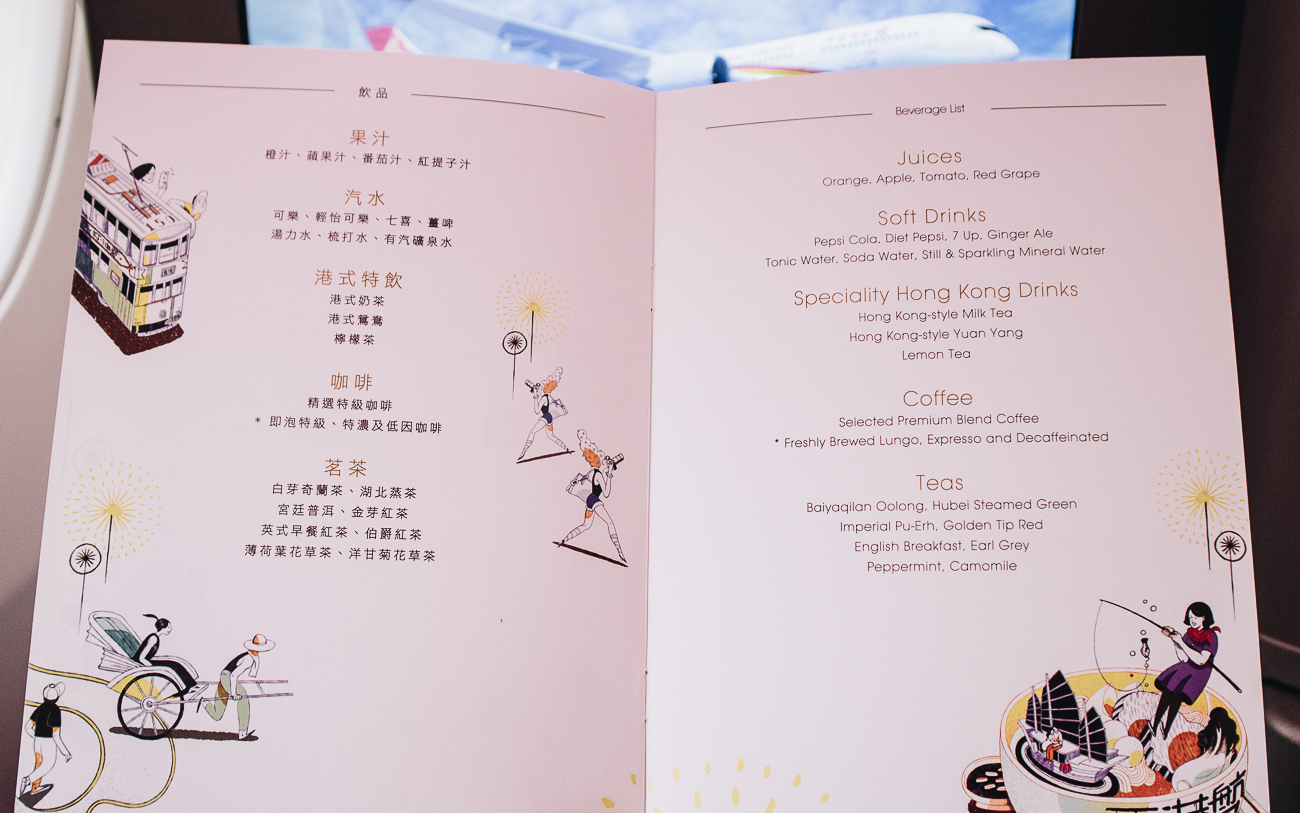 飲品
果汁
橙汁、蘋果汁、番茄汁、紅提子汁
汽水
可樂、輕怡可樂、七喜、薑啤
湯力水、梳打水、有汽礦泉水
港式特飲
港式奶茶
港式鴛鴦
檸檬茶
咖啡
精選特級咖啡
* 即泡特級、特濃及低因咖啡
茗茶
白芽奇蘭茶、湖北蒸茶
宮廷普洱、金芽紅茶
英式早餐紅茶、伯爵紅茶
薄荷葉花草茶、洋甘菊花草茶
Beverage List
Juices
Orange, Apple, Tomato, Red Grape
Soft Drinks
Pepsi Cola, Diet Pepsi, 7 Up, Ginger Ale
Tonic Water, Soda Water, Still & Sparkling Mineral Water
Speciality Hong Kong Drinks
Hong Kong-style Milk Tea
Hong Kong-style Yuan Yang
Lemon Tea
Coffee
Selected Premium Blend Coffee
* Freshly Brewed Lungo, Expresso and Decaffeinated
Teas
Baiyaqilan Oolong, Hubei Steamed Green
Imperial Pu-Erh, Golden Tip Red
English Breakfast, Earl Grey
Peppermint, Camomile